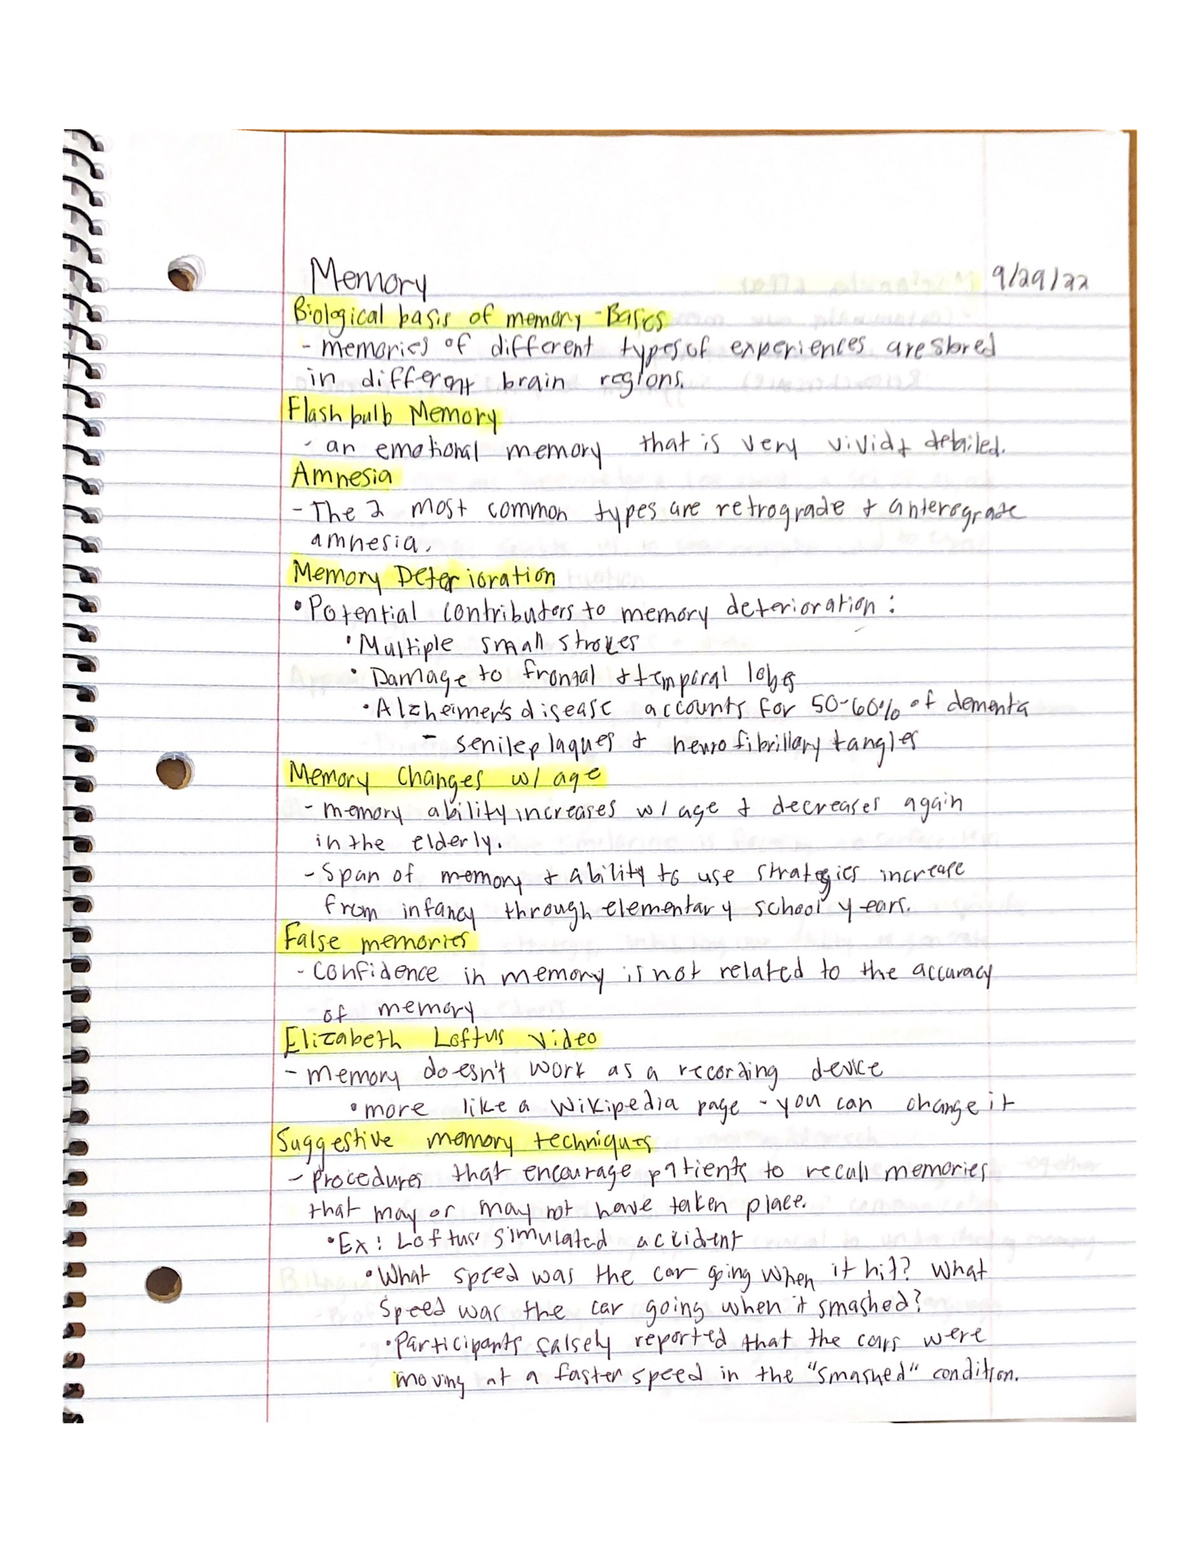 Memory 9/29/22
Biological basis of memory - Basics
- memories of different types of experiences are stored
in different brain regions.
Flashbulb Memory
- an emotional memory that is very vivid & detailed.
Amnesia
- The 2 most common types are retrograde & anterograde
amnesia.
Memory Deterioration
• Potential contributors to memory deterioration:
• Multiple small strokes
• Damage to frontal & temporal lobes
• Alzheimer's disease accounts for 50-60% of dementa
- senile plaques & neurofibrillary tangles
Memory Changes w/ age
- memory ability increases w/ age & decreases again
in the elderly.
- Span of memory & ability to use strategies increase
from infancy through elementary school years.
False memories
- Confidence in memory is not related to the accuracy
of memory
Elizabeth Loftus Video
- memory doesn't work as a recording device
• more like a Wikipedia page - you can change it
Suggestive memory techniques
- Procedures that encourage patients to recall memories
that may or may not have taken place.
• Ex: Loftus' simulated accident
• What speed was the car going when it hit? What
speed was the car going when it smashed?
• Participants falsely reported that the cars were
moving at a faster speed in the "smashed" condition.